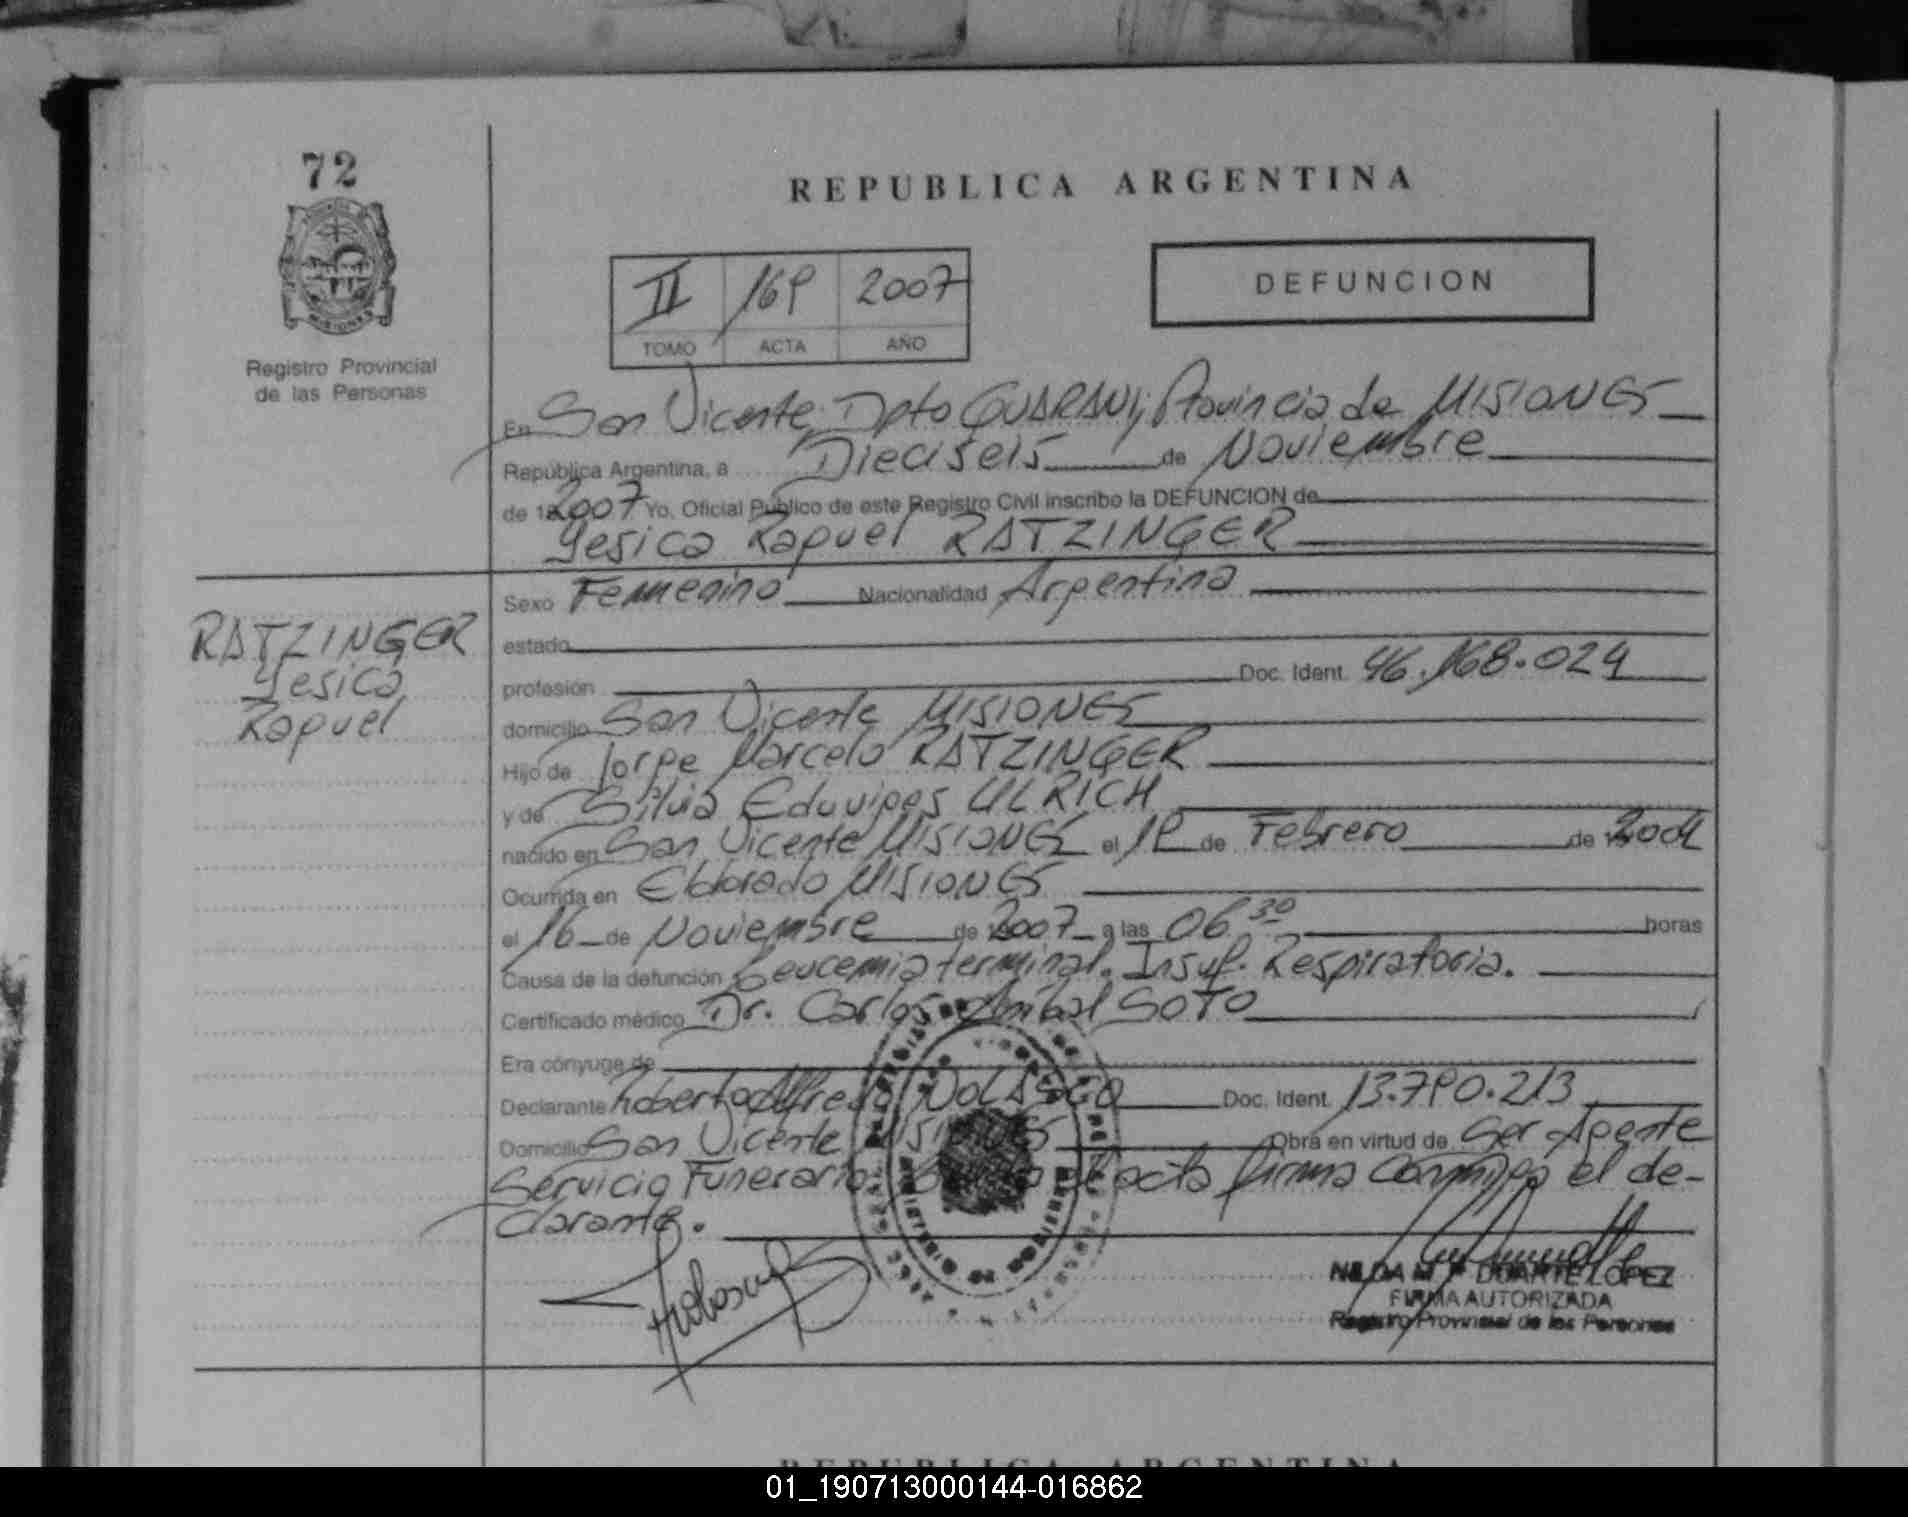 72
REPUBLICA ARGENTINA
MISIONES
Registro Provincial
de las Personas
II 169 2007
TOMO ACTA AÑO
DEFUNCION
En San Vicente, Dpto GUARANI, Provincia de MISIONES
República Argentina, a Dieciseis de Noviembre
de 2007 Yo, Oficial Público de este Registro Civil inscribo la DEFUNCION de
Yesica Raquel RATZINGER
RATZINGER
Yesica
Raquel
Sexo Femenino Nacionalidad Argentina
estado
profesión Doc. Ident. 46.168.024
domicilio San Vicente MISIONES
Hijo de Jorge Marcelo RATZINGER
y de Silvia Eduviges ULRICH
nacido en San Vicente MISIONES el 19 de Febrero de
Ocurrida en Eldorado MISIONES
el 16 de Noviembre de 2007 a las 06 30 horas
Causa de la defunción Leucemia terminal. Insuf. Respiratoria.
Certificado médico Dr. Carlos Anibal SOTO
Era cónyuge de
Declarante Roberto Alfredo NOLASCO Doc. Ident. 13.790.213
Domicilio San Vicente MISIONES Obra en virtud de Ser Agente
Servicio Funerario. el acta firma conmigo el de-
clarante.
NILDA M. DUARTE LOPEZ
FIRMA AUTORIZADA
Registro Provincial de las Personas
REPUBLICA ARGENTINA
01_190713000144-016862